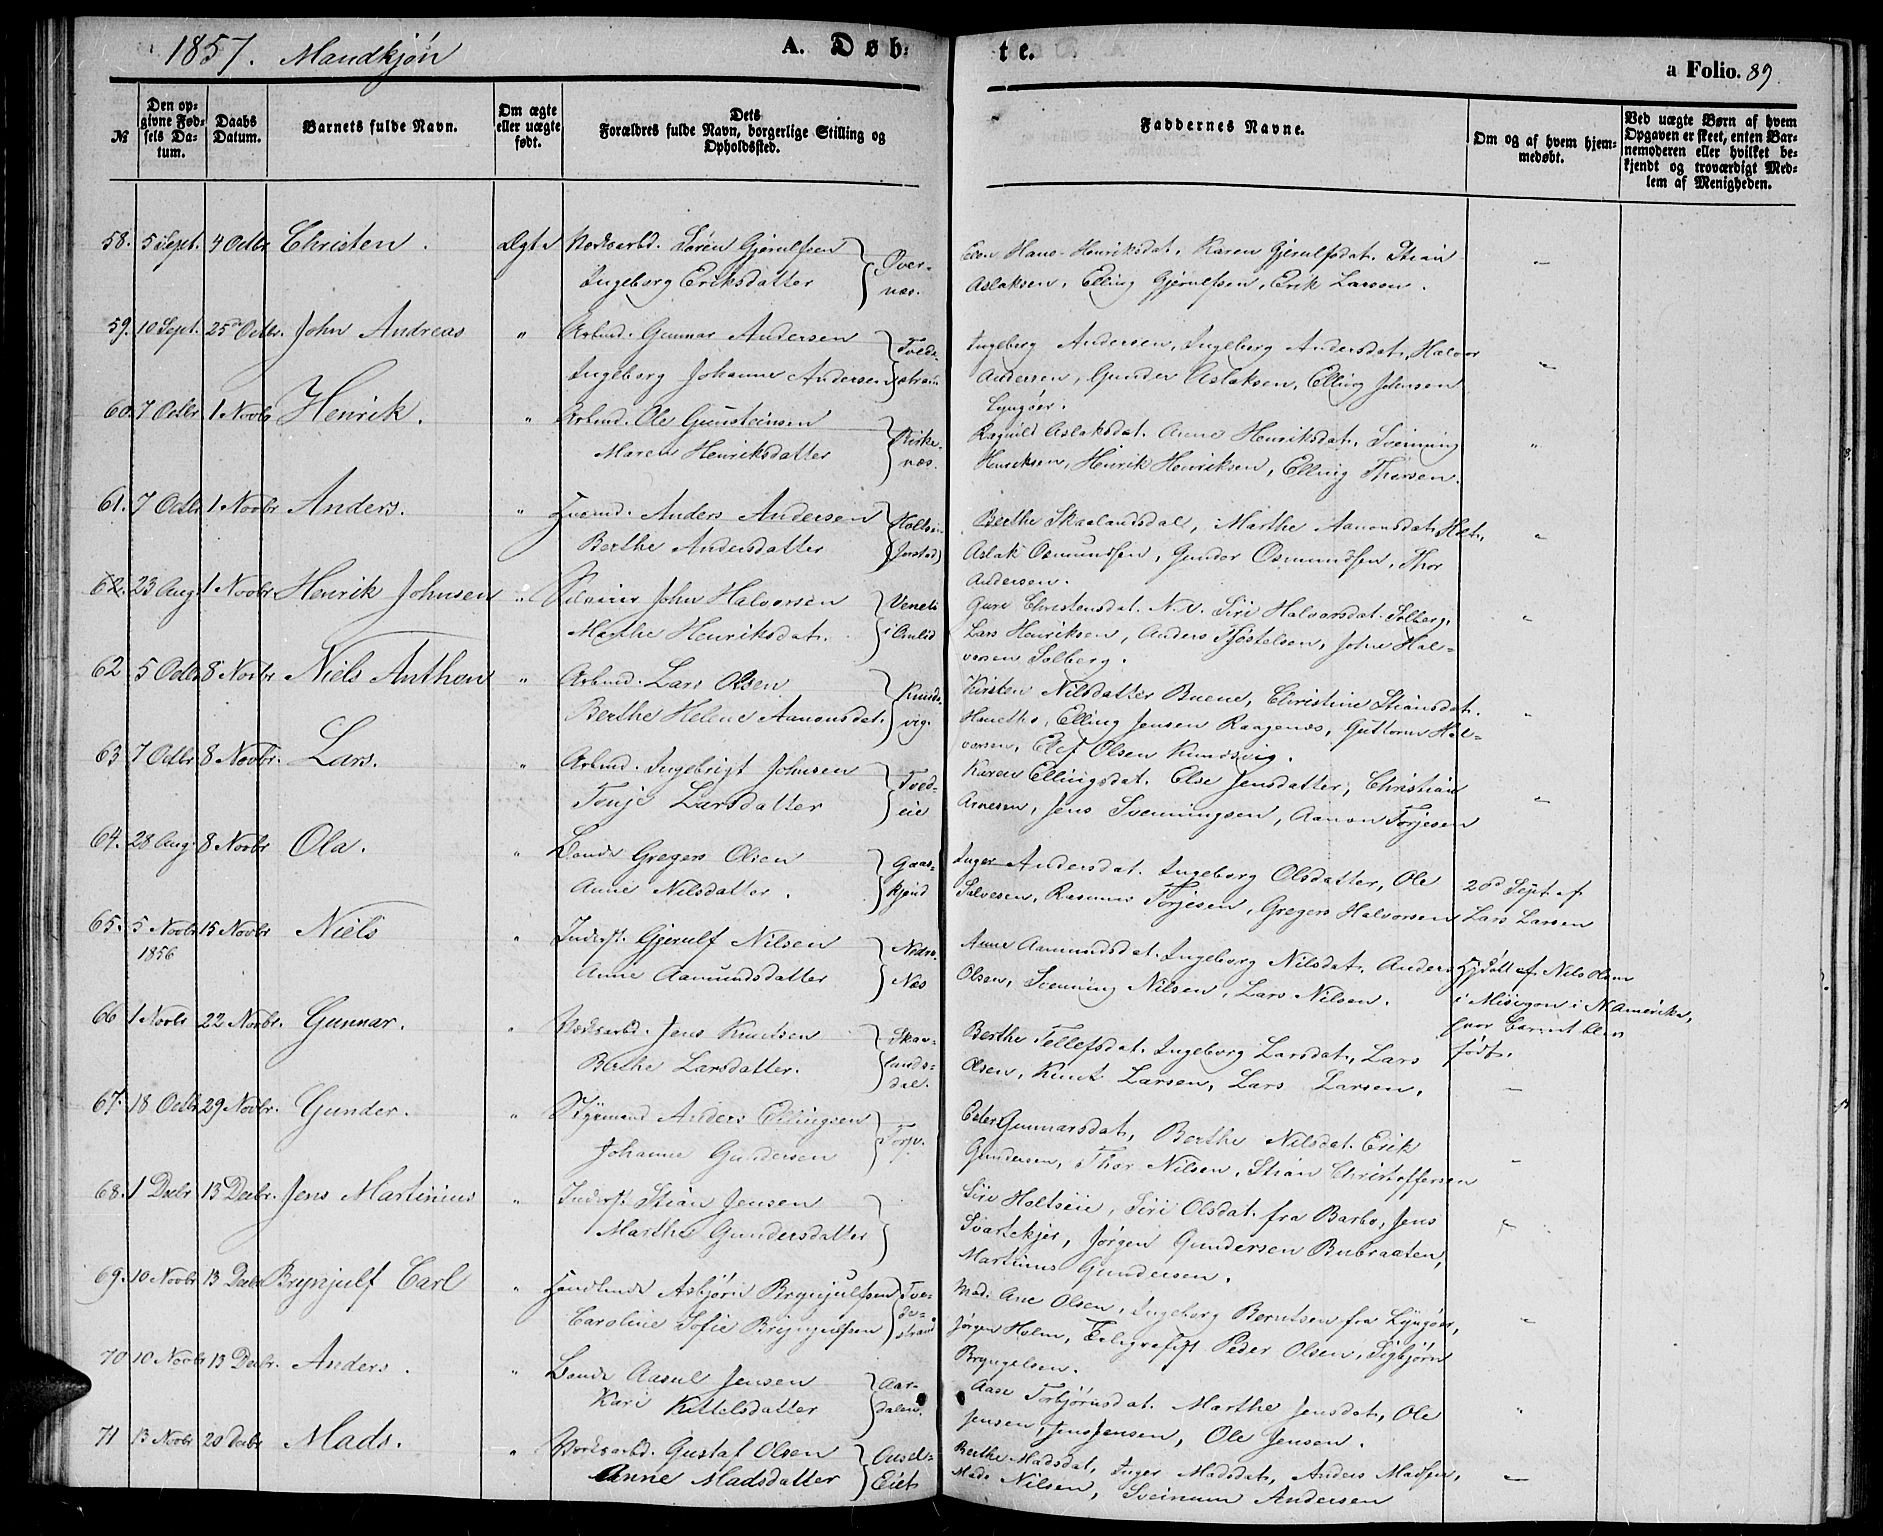 1857. Mandkjøn A. Døbte. a Folio. 89.
№
Den opgivne Fødsels Datum.
Daabs Datum.
Barnets fulde Navn.
Om ægte eller uægte født.
Dets Forældres fulde Navn, borgerlige Stilling og Opholdssted.
Faddernes Navne.
Om og af hvem hjemmedøbt.
Ved uægte Børn af hvem Opgaven er skeet, enten Barnemoderen eller hvilket bekjendt og troværdigt Medlem af Menigheden.
58. 5 Sept. 4 Octbr Christen. Søren Gjerulfsen
Ingeborg Eriksdatter Overnæs.
Hans Henriksdat, Karen Gjerulfsdat. Stian
Aslaksen, Elling Gjerulfsen, Erik Larsen. "
59. 10 Sept. 25de Octbr. John Andreas " Arbmd. Gunnar Andersen
Ingeborg Johanne Andersen Tvedestrand
Ingeberg Andersen, Ingeberg Andersdat, Halvor
Andersen, Gunder Aslaksen, Elling Johnsen
Lyngøer. "
60. 7 Octbr 1 Novbr Henrik. " Arbmd. Ole Gunsteinsen
Maren Henriksdatter Birkenæs.
Ragnild Aslaksdat. Anne Henriksdat, Svenning
Henriksen, Henrik Henriksen, Elling Thorsen. "
61. 7 Octbr 1 Novbr Anders. " Anders Andersen
Berthe Andersdatter
Berthe Skaalandsdal, Marthe Aanonsdat, Holt,
Aslak Osmundsen, Gunder Osmundsen, Thor
Andersen. "
62. 23 Aug. 1 Novbr Henrik Johnsen " John Halvorsen
Marthe Henriksdat.
Guro Christensdat. N. N. Siri Halvorsdat. Solberg,
Lars Henriksen, Anders Kjøstelsen, John Hal-
vorsen Solberg. "
62 5 Octbr 8 Novbr Niels Anthon " Arbmd. Lars Olsen
Berthe Helene Aanonsdat. Knudsvig.
Kirsten Nilsdatter Buene, Christine Stiansdat.
Elling Jensen Raagenæs, Guttorm Hal-
vorsen, Elef Olsen Knudsvig. "
63 7 Octbr 8 Novbr. Lars. " Arbmd. Ingebrigt Johnsen
Tonje Larsdatter Tved-
eie
Karen Ellingsdat. Else Jensdatter, Christian
Arnesen, Jens Svenningsen, Aanon Torjesen "
64. 28 Aug. 8 Novbr Ola. " Bonde Gregers Olsen
Anne Nilsdatter.
Inger Andersdat. Ingeborg Olsdatter, Ole
Salvesen, Rasmus Torjesen, Gregers Halvorsen
20de Sept. af
Lars Larsen
65. 5 Novbr 1856 15 Novbr Niels " Inderst. Gjerulf Nilsen
Anne Aamundsdatter Nedre Næs
Anne Aamundsdat. Ingeborg Nilsdat, Anders
Olsen, Svenning Nilsen, Lars Nilsen.
Hjdøbt af Nils Olsen
i Misigon i N Amerika,
hvor Barnet blev
født.
66 1 Novbr 22 Novbr. Gunnar. " Jens Knudsen
Berthe Larsdatter. Skaa-
lands-
dal.
Berthe Tellefsdat. Ingeborg Larsdat, Lars
Olsen, Knut Larsen, Lars Larsen, "
67. 18 Octbr 29 Novbr. Gunder. " Styrmand Anders Ellingsen
Johanne Gundersen
Gunnarsdat, Berthe Nilsdat. Erik
Gundersen, Thor Nilsen, Stian Christoffersen "
68. 1 Decbr 13 Decbr. Jens Martinius " Inderst. Stian Jensen
Marthe Gundersdatter
Siri Holtseie, Siri Olsdat. fra Barbo, Jens
Svartekjer, Jørgen Gundersen Bubraaten,
Martinus Gundersen. "
69. 10 Novbr 13 Decbr Brynjulf Carl " Handlende Asbjørn Brynjulfsen
Caroline Sofie Brynjulfsen Tve-
de-
strand
Mad. Ane Olsen, Ingeborg Berntsen fra Lyngøer,
Jørgen Holm, Telegrafist Peder Olsen, Sigbjørn
Bryngelsen. "
70 10 Novbr 13 Decbr. Anders. " Bonde Aasul Jensen
Kari Kittelsdatter Aar-
dalen.
Aase Torbjørnsdat. Marthe Jensdat, Ole
Jensen, Jens Jensen, Ole Jensen. "
71 13 Novbr 20 Decbr Mads. " Gustaf Olsen
Anne Madsdatter
Berthe Madsdat, Inger Madsdat, Anders Madsen,
Mads Nilsen, Sveinum Andersen "